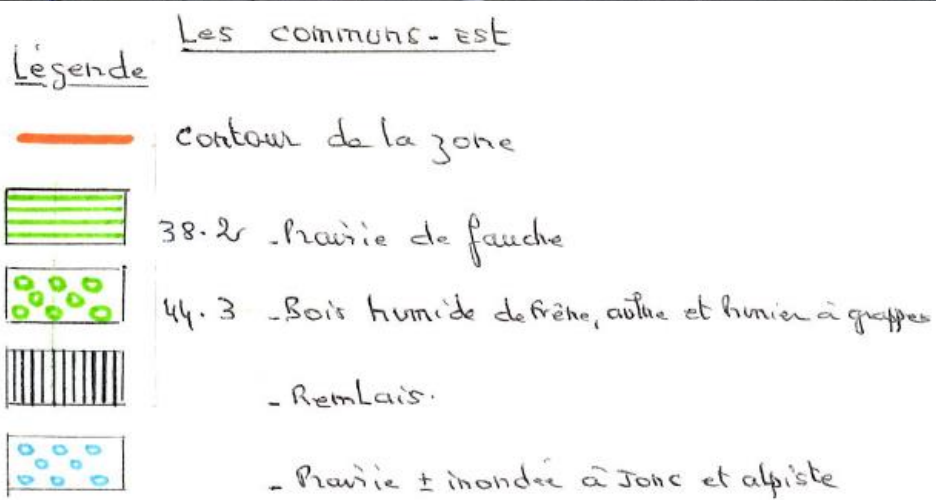 Les communs - Est
Légende
contour de la zone
38.2 - Prairie de fauche
44.3 - Bois humide de frêne, aulne et à grappes
- Remblais.
- Prairie ± inondée à Jonc et alpiste